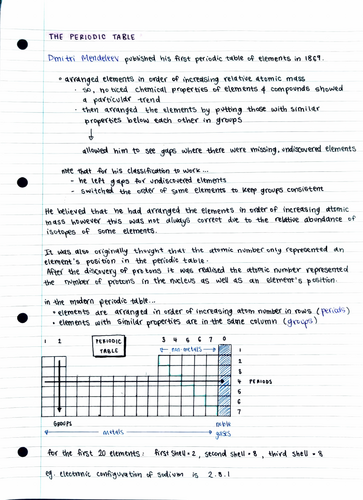 THE PERIODIC TABLE
Dmitri Mendeleev published his first periodic table of elements in 1869.
arranged elements in order of increasing relative atomic mass
- so, noticed chemical properties of elements & compounds showed
a particular trend
- then arranged the elements by putting those with similar
properties below each other in groups
allowed him to see gaps where there were missing, undiscovered elements
that for his classification to work...
- he left gaps for undiscovered elements
- switched the order of some elements to keep groups consistent
He believed that he had arranged the elements in order of increasing atomic
mass however this was not always correct due to the relative abundance of
isotopes of some elements.
It was also originally thought that the atomic number only represented an
element's position in the periodic table.
After the discovery of protons it was realised the atomic number represented
the number of protons in the nucleus as well as an element's position.
in the modern periodic table...
• elements are arranged in order of increasing atom number in rows (periods)
• elements with similar properties are in the same column (groups)
1 2 PERIODIC TABLE 3 4 5 6 7 0
non-metals
1
2
3
4 PERIODS
5
6
7
GROUPS
metals
noble gases
for the first 20 elements: first shell = 2, second shell = 8, third shell = 8
eg. electronic configuration of sodium is 2.8.1